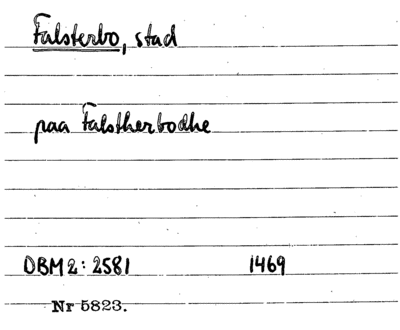 Falsterbo, stad
paa Falstherbodhe
DBM 2: 2581 1469
Nr 5823.